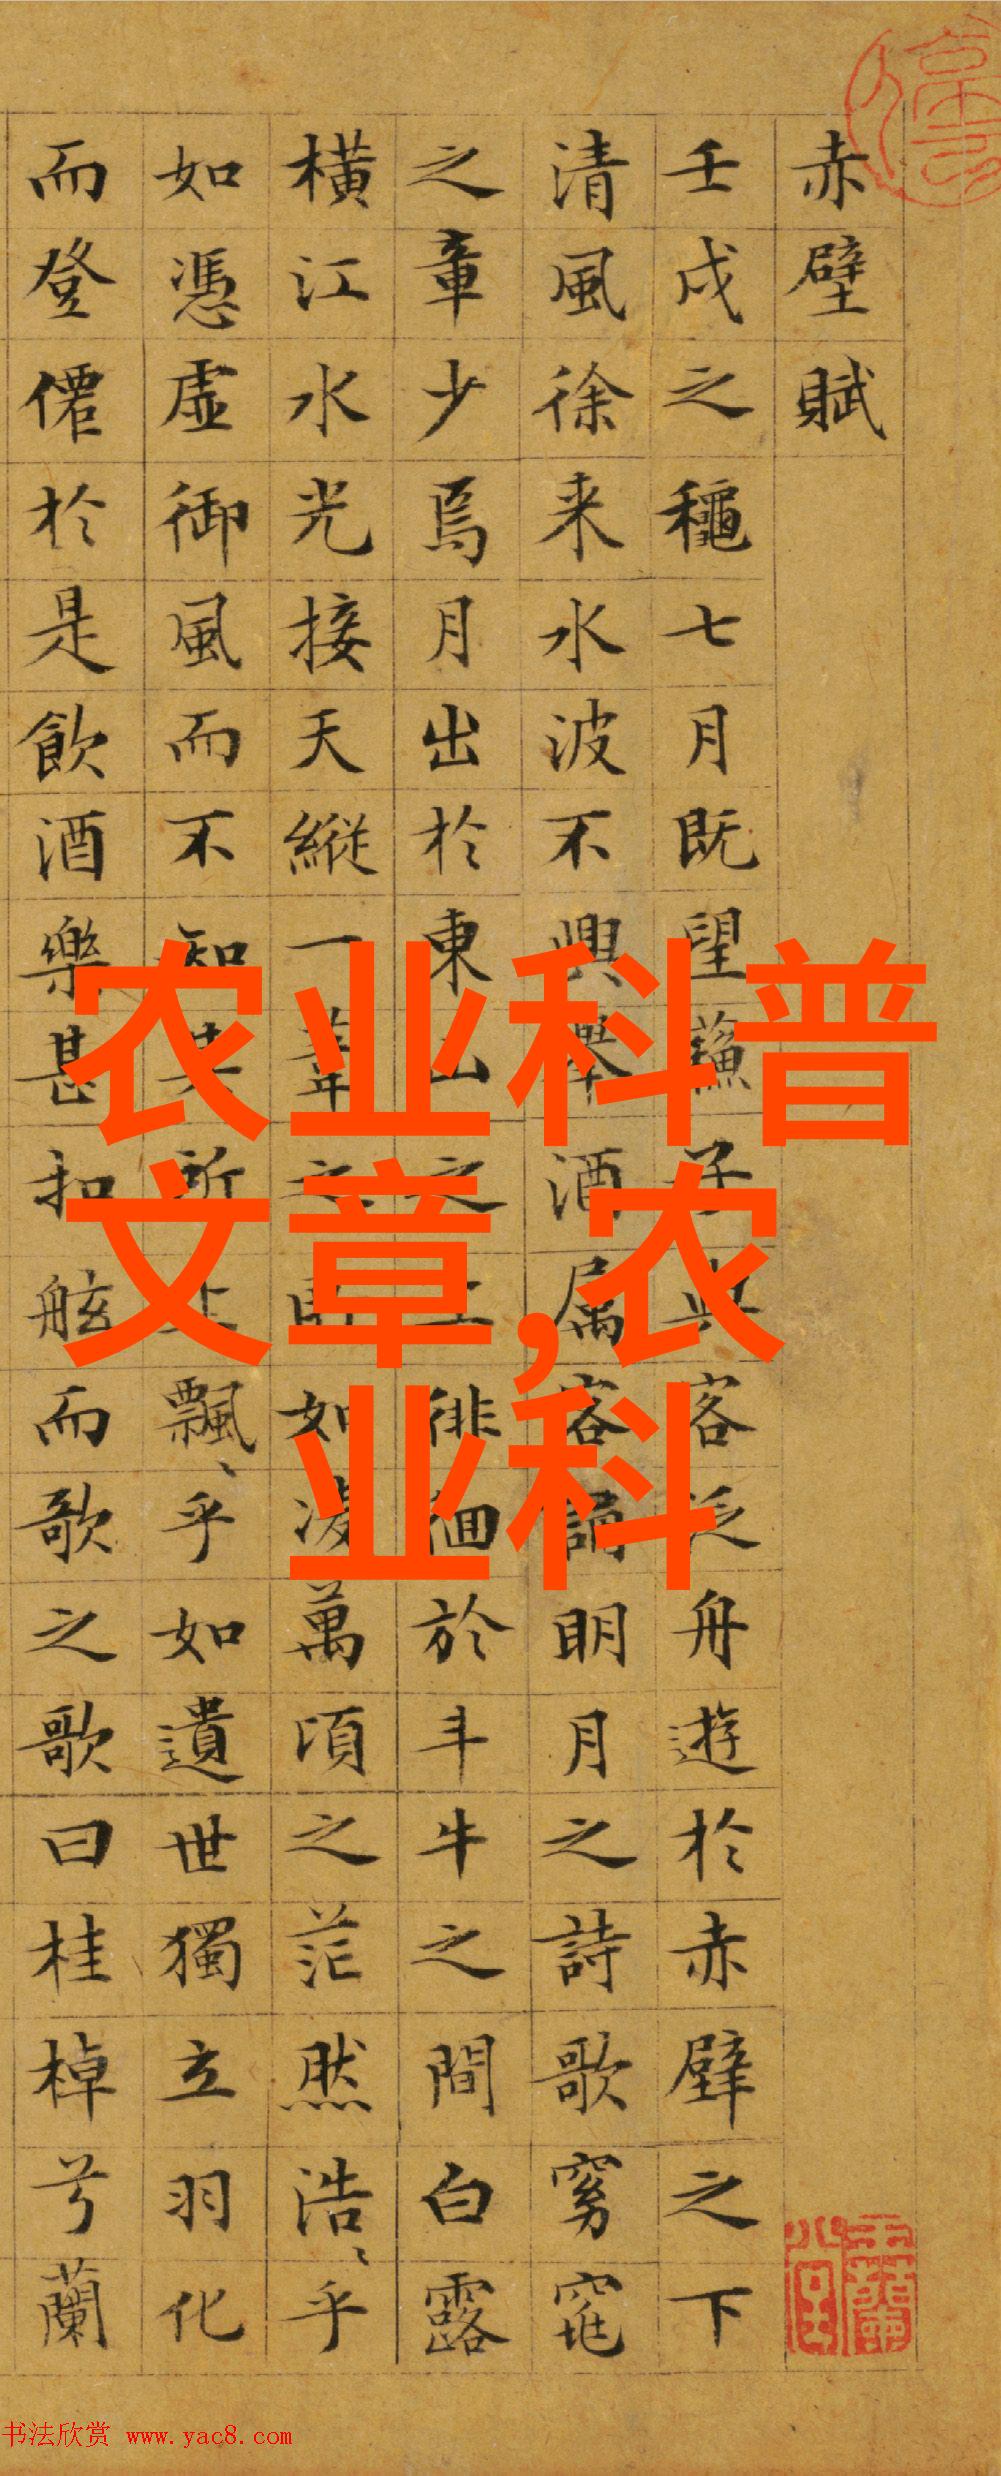 赤壁賦
壬戌之穐七月既望蘇子與客泛舟遊於赤壁之下
清風徐来水波不興舉酒属客誦明月之詩歌窈窕
之章少焉月出於東山之上徘徊於斗牛之間白露
横江水光接天縱一葦之所如凌萬頃之茫然浩〻乎
如憑虚御風而不知其所止飄〻乎如遺世獨立羽化
而登僊於是飲酒樂甚扣舷而歌之歌曰桂棹兮蘭
农业科普
文章,农
业科
书法欣赏 www.yac8.com